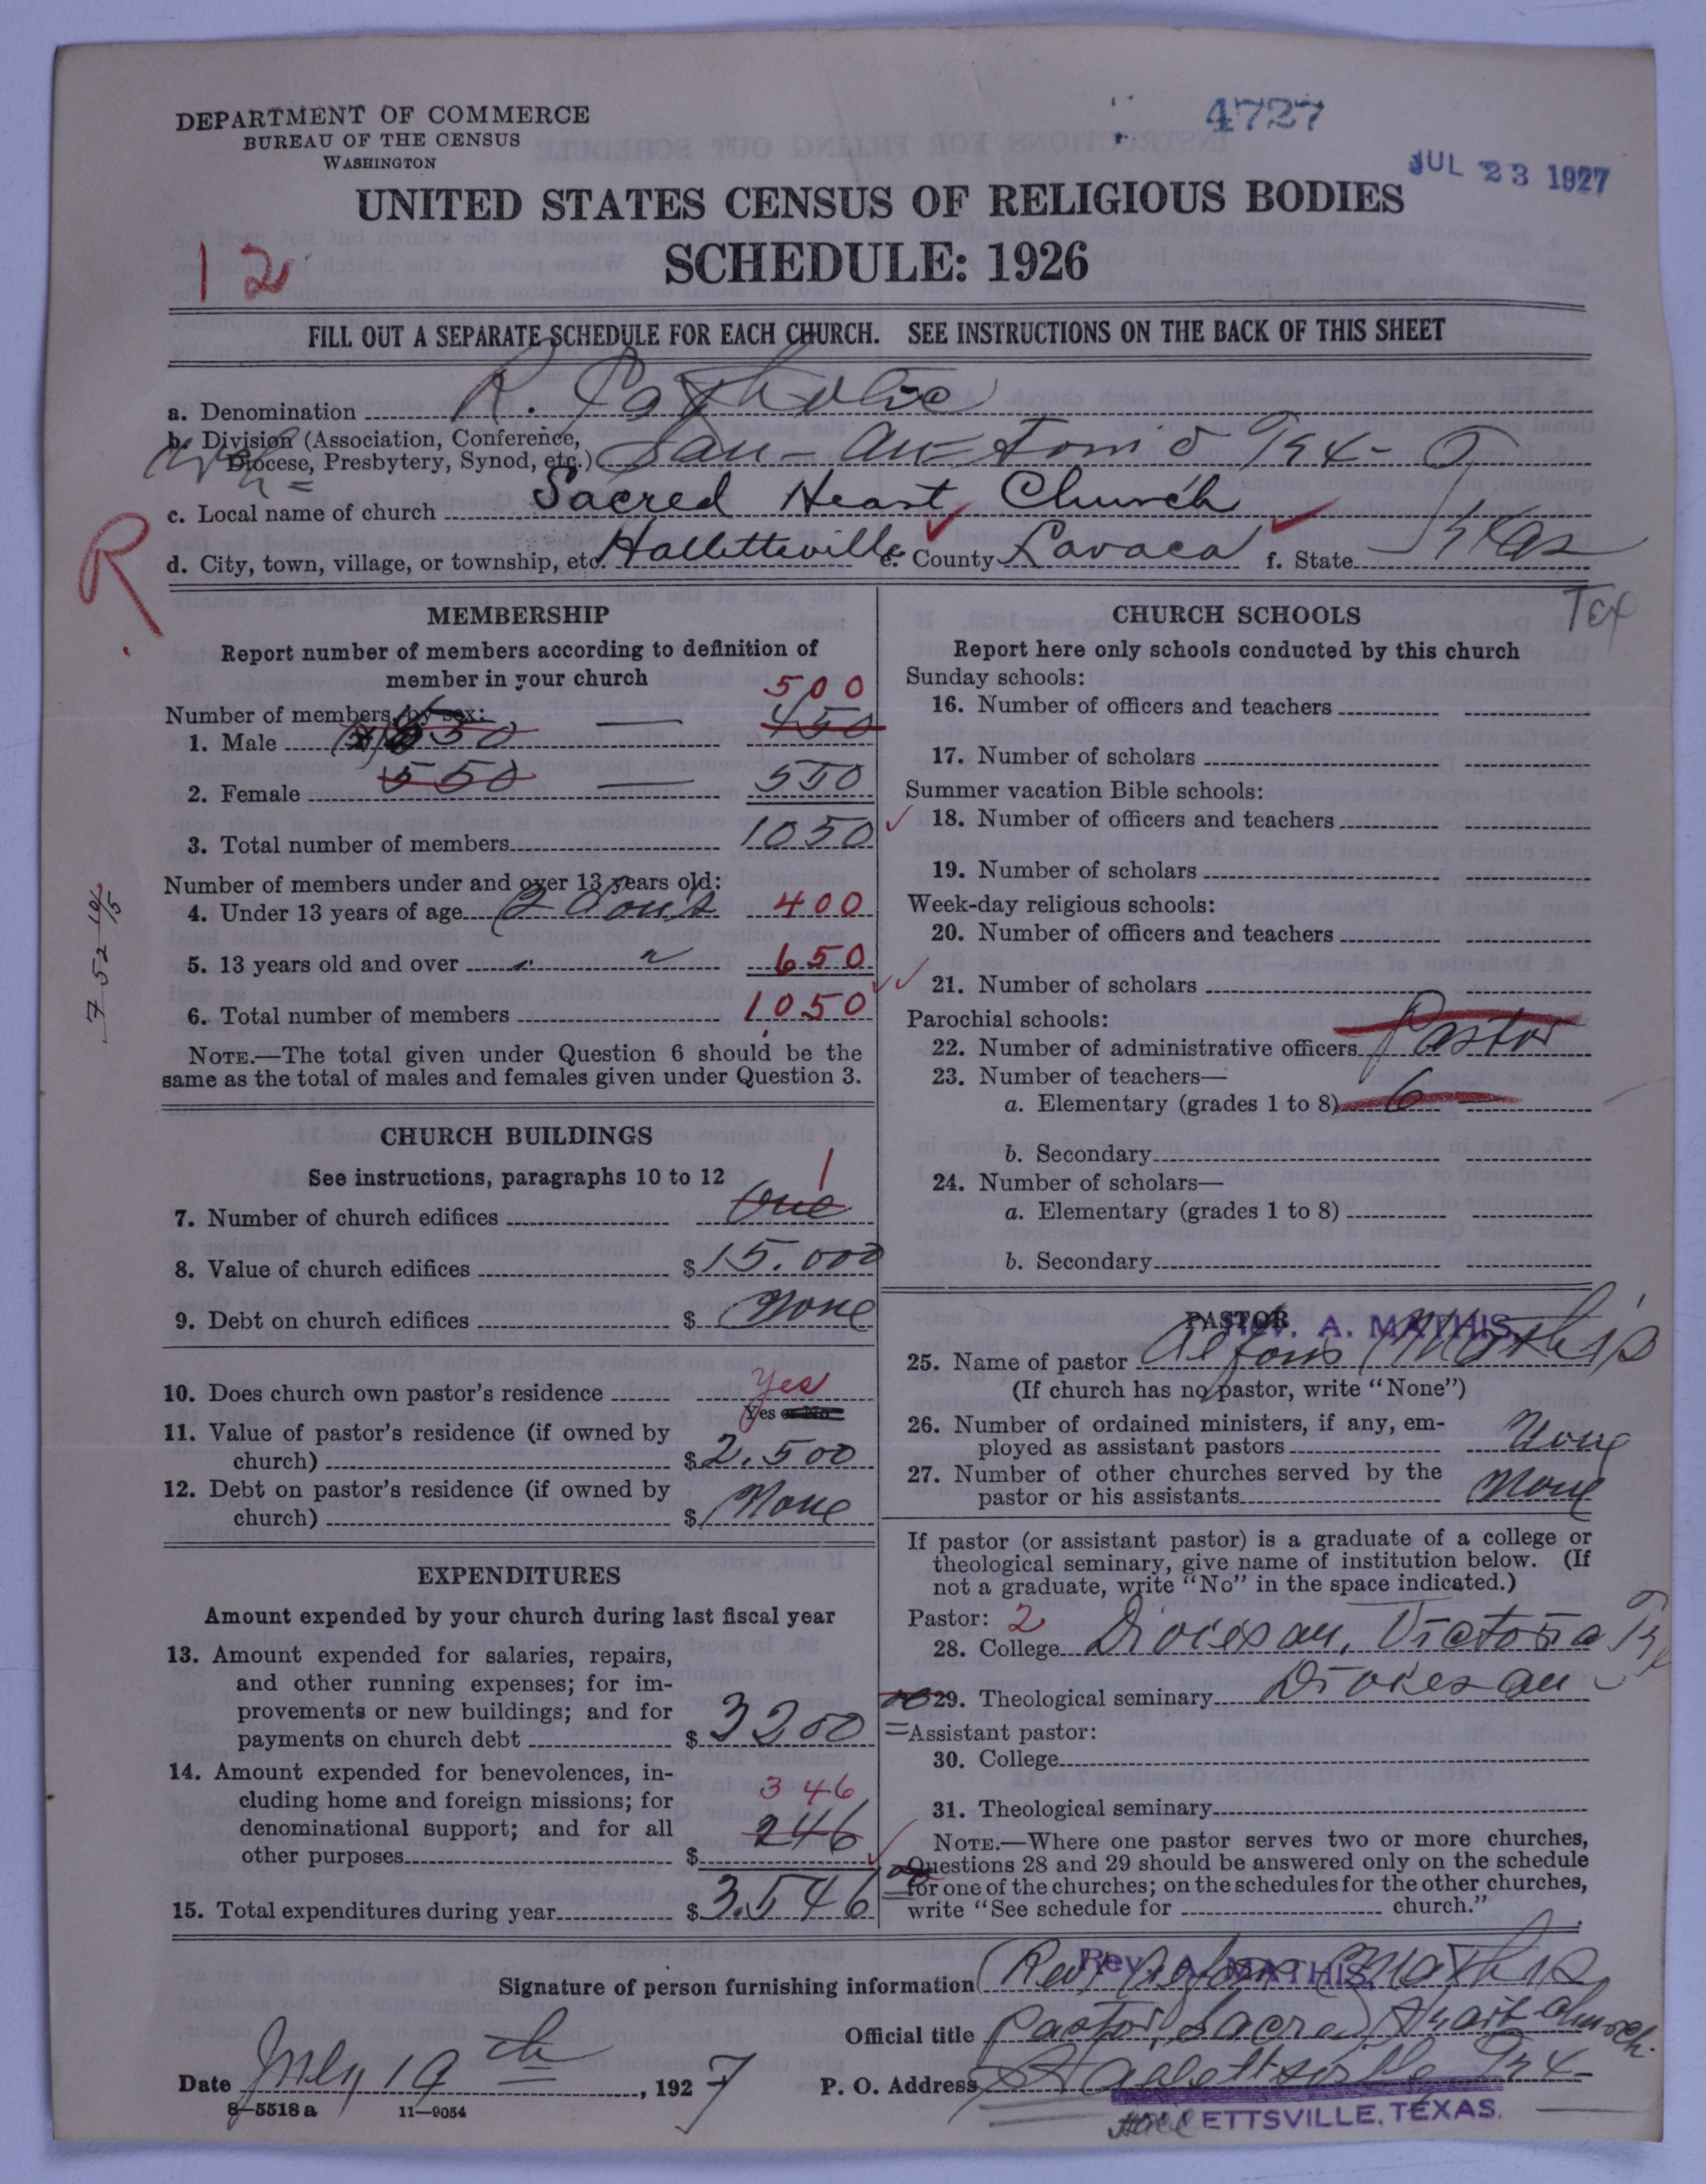 4727
JUL 23 1927
DEPARTMENT OF COMMERCE
BUREAU OF THE CENSUS
WASHINGTON
UNITED STATES CENSUS OF RELIGIOUS BODIES
SCHEDULE: 1926
12
FILL OUT A SEPARATE SCHEDULE FOR EACH CHURCH. SEE INSTRUCTIONS ON THE BACK OF THIS SHEET
a. Denomination R. Catholic
b. Division (Association, Conference,
Diocese, Presbytery, Synod, etc.) San-Antonio Tex-
c. Local name of church Sacred Heart Church
d. City, town, village, or township, etc. Hallettsville e. County Lavaca f. State Texas
R
Tex
MEMBERSHIP
Report number of members according to definition of
member in your church
500
Number of members, by sex:
1. Male 450
2. Female 550 — 550
3. Total number of members 1050
Number of members under and over 13 years old:
4. Under 13 years of age 400
5. 13 years old and over " " 650
6. Total number of members 1050
NOTE.—The total given under Question 6 should be the
same as the total of males and females given under Question 3.
CHURCH BUILDINGS
See instructions, paragraphs 10 to 12
1
7. Number of church edifices One
8. Value of church edifices $15.000
9. Debt on church edifices $ None
10. Does church own pastor's residence Yes
Yes or No
11. Value of pastor's residence (if owned by
church) $2.500
12. Debt on pastor's residence (if owned by
church) $ None
EXPENDITURES
Amount expended by your church during last fiscal year
13. Amount expended for salaries, repairs,
and other running expenses; for im-
provements or new buildings; and for
payments on church debt $ 3200
14. Amount expended for benevolences, in-
cluding home and foreign missions; for
denominational support; and for all
other purposes $
346
246
15. Total expenditures during year $3.546
CHURCH SCHOOLS
Report here only schools conducted by this church
Sunday schools:
16. Number of officers and teachers
17. Number of scholars
Summer vacation Bible schools:
18. Number of officers and teachers
19. Number of scholars
Week-day religious schools:
20. Number of officers and teachers
21. Number of scholars
Parochial schools:
22. Number of administrative officers Pastor
23. Number of teachers—
a. Elementary (grades 1 to 8) 6
b. Secondary
24. Number of scholars—
a. Elementary (grades 1 to 8)
b. Secondary
PASTOR
REV. A. MATHIS
25. Name of pastor Alfons Mathis
(If church has no pastor, write "None")
26. Number of ordained ministers, if any, em-
ployed as assistant pastors None
27. Number of other churches served by the
pastor or his assistants None
If pastor (or assistant pastor) is a graduate of a college or
theological seminary, give name of institution below. (If
not a graduate, write "No" in the space indicated.)
Pastor: 2
28. College Diocesan, Victoria Tex
29. Theological seminary Diocesan
Assistant pastor:
30. College
31. Theological seminary
NOTE.—Where one pastor serves two or more churches,
Questions 28 and 29 should be answered only on the schedule
for one of the churches; on the schedules for the other churches,
write "See schedule for church."
Signature of person furnishing information Rev. Alfons Mathis
Rev. A. MATHIS.
Official title Pastor, Sacred Heart Church.
Date July 19th, 1927
P. O. Address Hallettsville, Tex-
HALLETTSVILLE, TEXAS.
8-5518a 11-9054